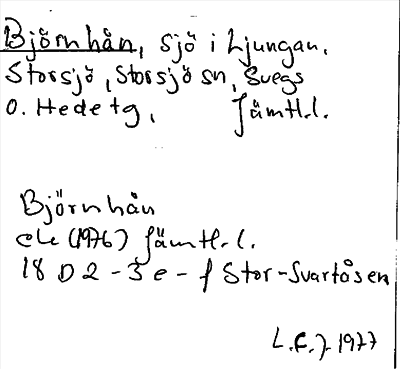 Björnhån, sjö i Ljungan.
Storsjö, Storsjö sn, Svegs
o. Hede tg, Jämtl.l.
Björnhån
ek (1976) Jämtl.l.
18 D 2 - 3 e - f Stor-Svartåsen
L.E.J. 1977